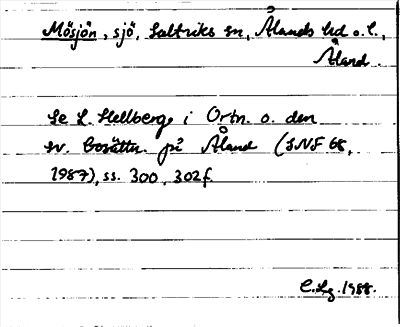 Mösjön, sjö, Saltviks sn, Ålands hd o. l.,
Åland.
Se L. Hellberg i Ortn. o. den
sv. bosättn. på Åland (SNF 68,
1987), ss. 300, 302f.
C.Lg. 1988.